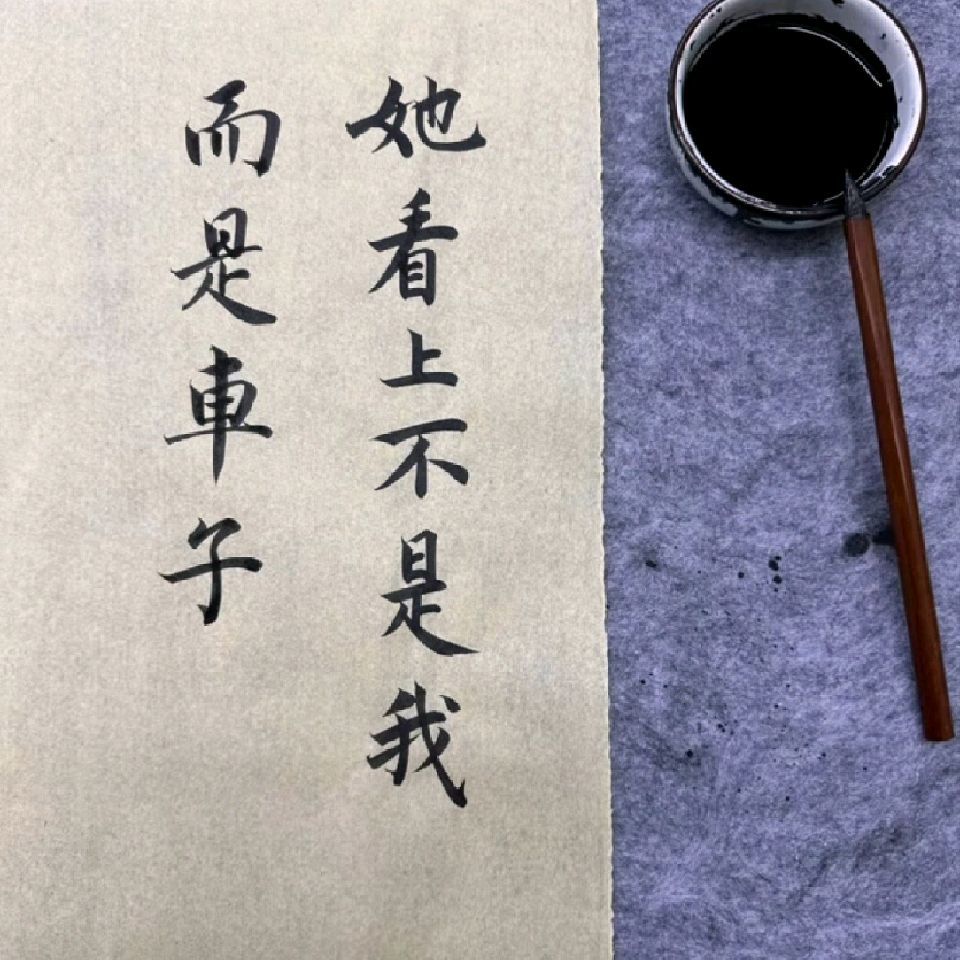 她看上不是我
而是車子